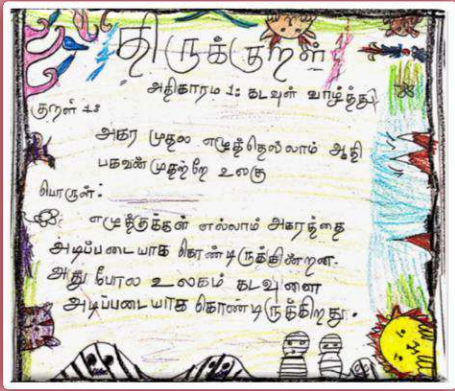 திருக்குறள்
அதிகாரம 1: கடவுள் வாழ்த்து
குறள் 1:
அகர முதல எழுத்தெல்லாம் ஆதி
பகவன் முதற்றே உலகு
பொருள்:
எழுத்துக்கள் எல்லாம் அகரத்தை
அடிப்படையாக கொண்டிருக்கின்றன.
அது போல உலகம் கடவுளை
அடிப்படையாக கொண்டிருக்கிறது.